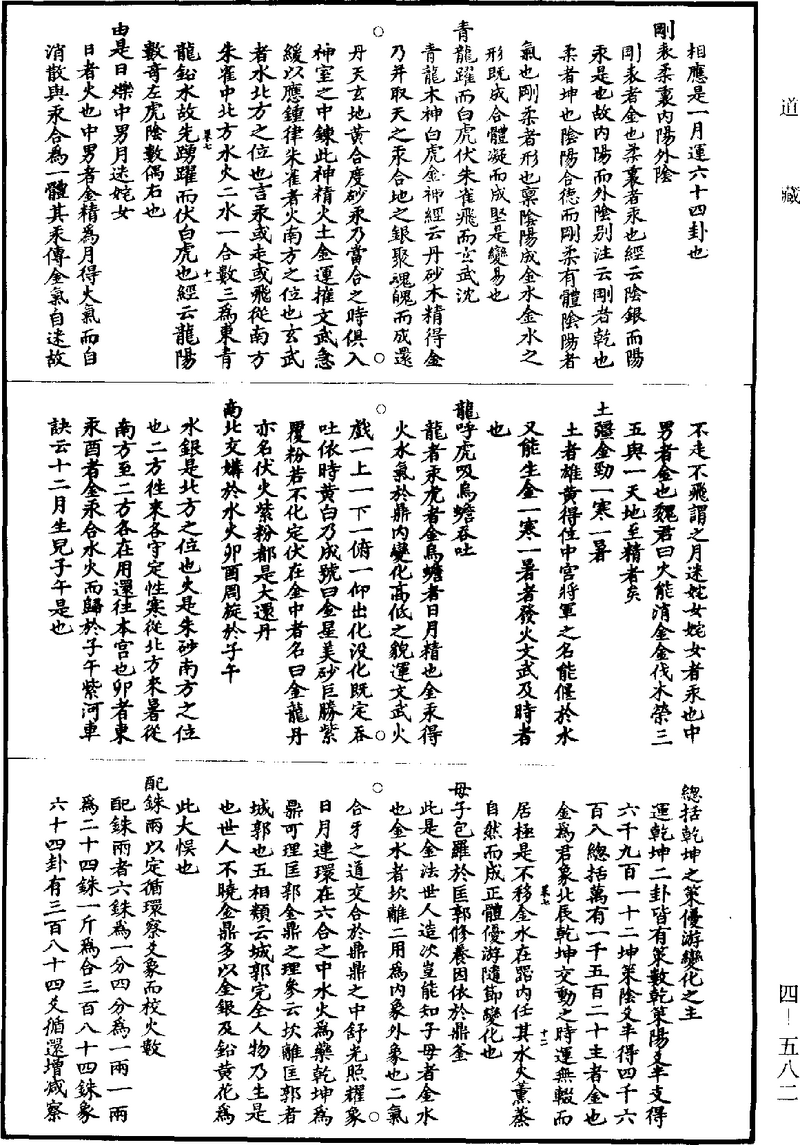 道藏
相應是一月運六十四卦也
剛表柔裏內陽外陰
剛表者金也柔裏者汞也經云陰銀而陽
汞是也故內陽而外陰别注云剛者乾也
柔者坤也陰陽合德而剛柔有體陰陽者
氣也剛柔者形也稟陰陽成金水金水之
形既成合體凝而成堅是變易也
青龍躍而白虎伏朱雀飛而玄武沈
青龍木神白虎金神經云丹砂木精得金
乃并取天之汞合地之銀聚魂魄而成還
丹天玄地黄合度砂汞乃當合之時俱入
神室之中鍊此神精火土金運摧文武急
緩以應鍾律朱雀者火南方之位也玄武
者水北方之位也言汞或走或飛從南方
朱雀中北方水火二水一合數三爲東青
龍鉛水故先踴躍而伏白虎也經云龍陽
卷七 十一
數奇左虎陰數偶右也
由是日爍中男月迷姹女
日者火也中男者金精爲月得火氣而白
消散與汞合爲一體其汞傳金氣自迷故
不走不飛謂之月迷姹女姹女者汞也中
男者金也魏君曰火能消金金伐木榮三
五與一天地至精者矣
土彊金勁一寒一暑
土者雄黄得位中宮將軍之名能偃於水
又能生金一寒一暑者發火文武及時者
也
龍呼虎吸烏蟾吞吐
龍者汞虎者金烏蟾者日月精也金汞得
火水氣於鼎內變化高低之貌運文武火
戲一上一下一俯一仰出化没化既定吞
吐依時黄白乃成號曰金星美砂巨勝紫
覆粉若不化定伏在金中者名曰金龍丹
亦名伏火紫粉都是大還丹
南北交媾於水火卯酉周旋於子午
水銀是北方之位也火是朱砂南方之位
也二方往來各守定性寒從北方來暑從
南方至二方各在用還往本宮也卯者東
汞酉者金汞合水火而歸於子午紫河車
訣云十二月生兒子午是也
總括乾坤之策優游變化之主
運乾坤二卦皆有策數乾策陽爻半支得
六千九百一十二坤策陰爻半得四千六
百八總括萬有一千五百二十主者金也
金爲君象北辰乾坤交動之時運無輟而
卷七 十二
居極是不移金水在器內任其水火薰蒸
自然而成正體優游隨節變化也
母子包羅於匡郭修養因依於鼎釜
此是金法世人造次豈能知子母者金水
也金水者坎離二用爲內象外象也二氣
合牙之道交合於鼎鼎之中舒光照耀象
日月連環在六合之中水火爲藥乾坤爲
鼎可理匡郭金鼎之理參云坎離匡郭者
城郭也五相類云城郭完全人物乃生是
也世人不曉金鼎多以金銀及鉛黄花爲
此大悞也
配銖兩以定循環察爻象而校火數
配銖兩者六銖爲一分四分爲一兩一兩
爲二十四銖一斤爲合三百八十四銖象
六十四卦有三百八十四爻循還增减察
四—五八二